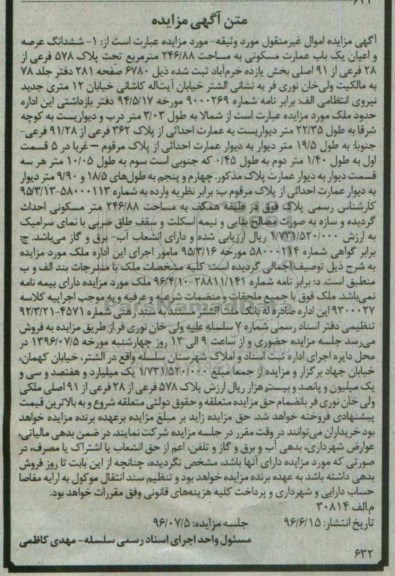 متن آگهی مزایده
آگهی مزایده اموال غیرمنقول مورد وثیقه- مورد مزایده عبارت است از: ۱- ششدانگ عرصه
و اعیان یک باب عمارت مسکونی به مساحت ۲۴۶/۸۸ مترمربع تحت پلاک ۵۷۸ فرعی از
۲۸ فرعی از ۹۱ اصلی بخش یازده خرم‌آباد ثبت شده ذیل ۶۷۸۰ صفحه ۲۸۱ دفتر جلد ۷۸
به مالکیت ولی‌خان نوری فر به نشانی الشتر خیابان آیت‌اله کاشانی خیابان ۱۲ متری جدید
نیروی انتظامی الف: برابر نامه شماره ۹۰۰۰۲۶۹ مورخه ۹۴/۵/۱۷ دفتر بازداشتی این اداره
حدود ملک مورد مزایده عبارت است از شمالا به طول ۳/۰۳ متر درب و دیواریست به کوچه
شرقا به طول ۲۲/۳۵ متر دیواریست به عمارت احداثی از پلاک ۳۶۲ فرعی از ۹۱/۲۸ فرعی-
جنوبا: به طول ۱۹/۵ متر دیوار به دیوار عمارت احداثی از پلاک مرقوم – غربا در ۵ قسمت
اول به طول ۱/۴۰ متر دوم به طول ۰/۴۵ که جنوبی است سوم به طول ۱۰/۰۵ متر هر سه
قسمت دیوار به دیوار عمارت پلاک مذکور. چهارم و پنجم به طول‌های ۱۸/۵ و ۹/۹۰ متر دیوار
به دیوار عمارت احداثی از پلاک مرقوم ب: برابر نظریه وارده به شماره ۵۸۰۰۰۱۱۳-۹۵/۳/۱۳
کارشناس رسمی پلاک فوق در طبقه همکف به مساحت ۲۴۶/۸۸ متر مسکونی احداث
گردیده و سازه به صورت مصالح بنایی و نیمه اسکلت و سقف طاق ضربی با نمای سرامیک
به ارزش ۱/۷۳۱/۵۲۰/۰۰۰ ریال ارزیابی شده و دارای انشعاب آب- برق و گاز می‌باشد. ج:
برابر گواهی شماره ۵۸۰۰۰۱۱۴ مورخه ۹۵/۳/۱۶ مامور اجرای این اداره ملک مورد مزایده
به شرح ذیل توصیف اجمالی گردیده است: کلیه مشخصات ملک با مندرجات بند الف و ب
منطبق است. د: برابر نامه شماره ۲۸۸۱۱/۱۴۱-۹۶/۴/۱۰ ملک مورد مزایده دارای بیمه نامه
نمی‌باشد. ملک فوق با جمیع ملحقات و منضمات شرعیه و عرفیه و به موجب اجراییه کلاسه
۹۳۰۰۰۲۷ این اداره صادره له بانک ملت الشتر مستند به سند رهنی شماره ۴۵۷۱-۹۲/۳/۲۱
تنظیمی دفتر اسناد رسمی شماره ۷ سلسله علیه ولی خان نوری فر از طریق مزایده به فروش
می‌رسد جلسه مزایده حضوری و از ساعت ۹ الی ۱۳ روز چهارشنبه مورخه ۱۳۹۶/۰۷/۵ در
محل دایره اجرای اداره ثبت اسناد و املاک شهرستان سلسله واقع در الشتر، خیابان کهمان،
خیابان جهاد برگزار و مزایده از جمعا مبلغ ۱/۷۳۱/۵۲۰/۰۰۰ یک میلیارد و هفتصد و سی و
یک میلیون و پانصد و بیست هزار ریال ارزش پلاک ۵۷۸ فرعی از ۲۸ فرعی از ۹۱ اصلی ملکی
ولی خان نوری فر بانضمام حق مزایده متعلقه و حقوق دولتی متعلقه شروع و به بالاترین قیمت
پیشنهادی فروخته خواهد شد. حق مزایده زاید بر مبلغ مزایده برعهده برنده مزایده خواهد
بود خریداران می‌توانند در وقت مقرر در جلسه مزایده شرکت نمایند. در ضمن بدهی مالیاتی،
عوارض شهرداری، بدهی آب و برق و گاز و تلفن، اعم از حق انشعاب یا اشتراک یا مصرف، در
صورتی که مورد مزایده دارای آنها باشد، مشخص نگردیده، چنانچه از این بابت تا روز فروش
بدهی داشته باشد به عهده برنده مزایده خواهد بود و تنظیم سند انتقال موکول به ارایه مفاصا
حساب دارایی و شهرداری و پرداخت کلیه هزینه‌های قانونی وفق مقررات خواهد بود.
م‌الف ۳۰۸۱۴
تاریخ انتشار: ۹۶/۶/۱۵ جلسه مزایده: ۹۶/۰۷/۵
مسئول واحد اجرای اسناد رسمی سلسله- مهدی کاظمی
۶۳۲